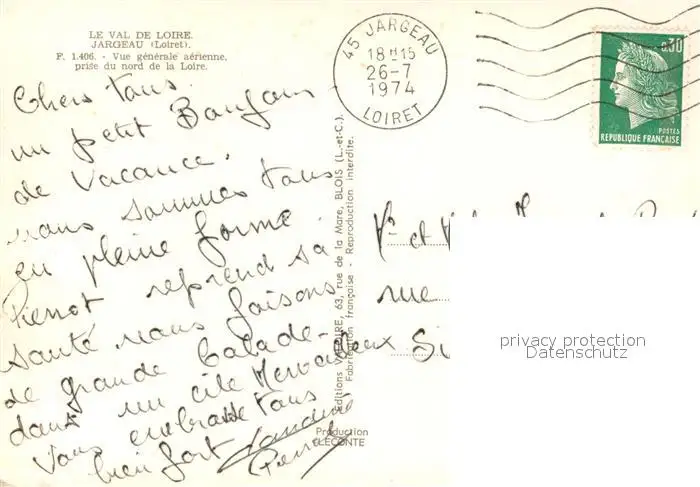 LE VAL DE LOIRE.
JARGEAU (Loiret).
F. 1.406. - Vue générale aérienne,
prise du nord de la Loire.
45 JARGEAU
18H15
26-7
1974
LOIRET
0,30
POSTES
REPUBLIQUE FRANÇAISE
Chers tous
un petit Bonjour
de Vacance.
nous sommes tous
en pleine forme
Pierrot reprend sa
santé nous faisons
de grande balade
dans un site Merveilleux
Vous embrasse tous
bien fort
Pierrot
Éditions VALOIRE, 63, rue de la Mare, BLOIS (L.-et-C.).
Fabrication française - Reproduction interdite.
Production
LECONTE
et
rue
privacy protection
Datenschutz